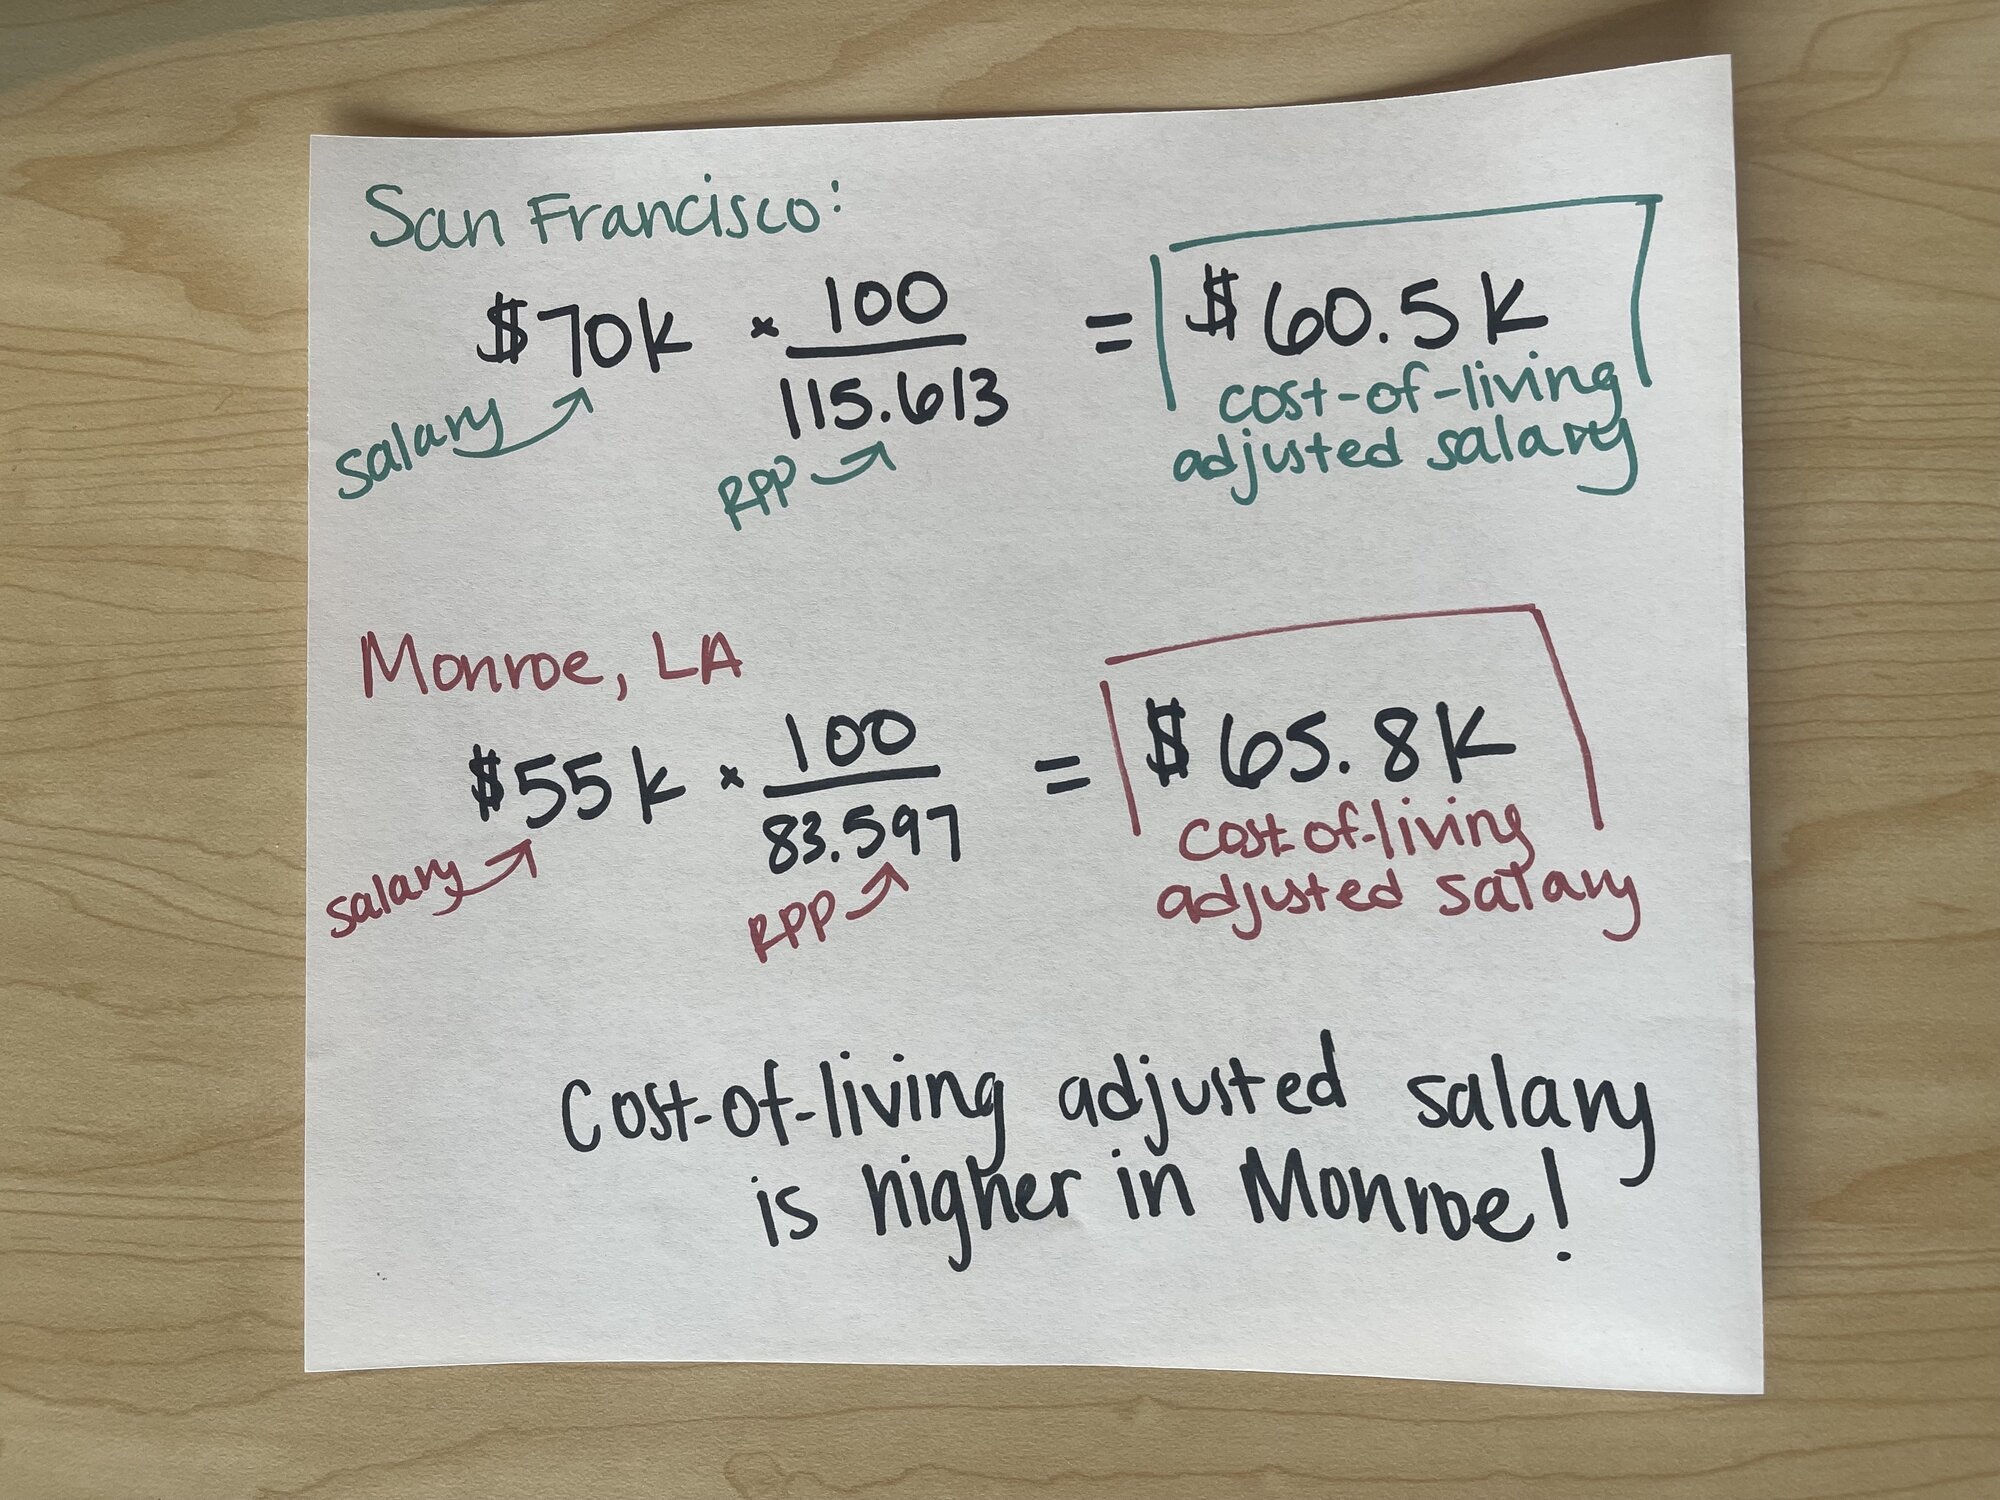 San Francisco:
$70k × 100 = $60.5K
115.613
salary
RPP
cost-of-living
adjusted salary
Monroe, LA
$55k × 100 = $65.8K
83.597
salary
RPP
cost-of-living
adjusted salary
Cost-of-living adjusted salary
is higher in Monroe!